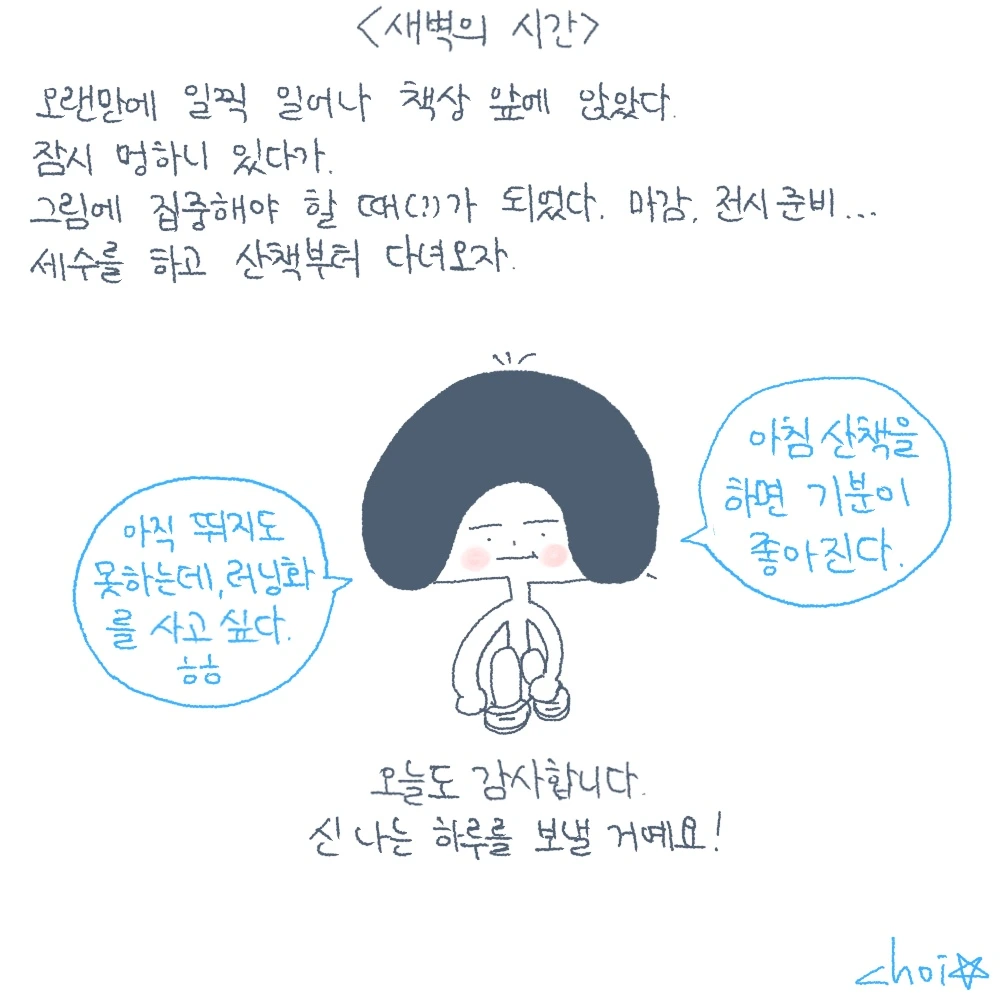 <새벽의 시간>
오랜만에 일찍 일어나 책상 앞에 앉았다.
잠시 멍하니 있다가.
그림에 집중해야 할 때(!)가 되었다. 마감, 전시 준비...
세수를 하고 산책부터 다녀오자.
아침 산책을
하면 기분이
좋아진다.
아직 뛰지도
못하는데, 러닝화
를 사고 싶다.
ㅎㅎ
오늘도 감사합니다.
신 나는 하루를 보낼 거예요!
choi